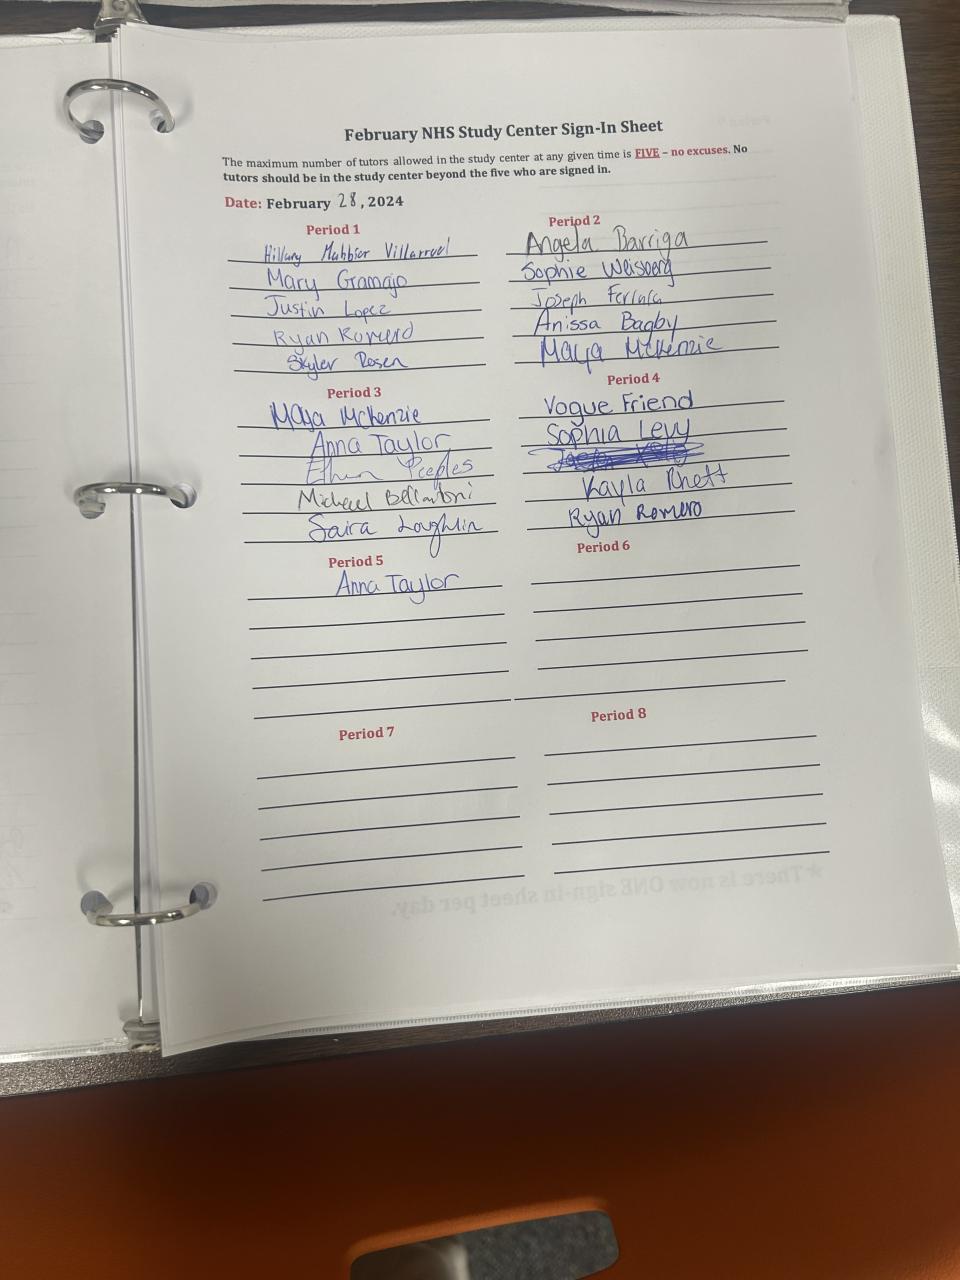 February NHS Study Center Sign-In Sheet
The maximum number of tutors allowed in the study center at any given time is FIVE – no excuses. No
tutors should be in the study center beyond the five who are signed in.
Date: February 28, 2024
Period 1
Hillary Villarruel
Mary Gramajo
Justin Lopez
Ryan Romero
Skyler Rosen
Period 2
Angela Barriga
Sophie Weisberg
Joseph
Anissa Bagby
Maya McKenzie
Period 3
Maya McKenzie
Anna Taylor
Ethan Peeples
Michael Bellantoni
Saira Loughlin
Period 4
Vogue Friend
Sophia Levy
Kayla Rhett
Ryan Romero
Period 5
Anna Taylor
Period 6
Period 7
Period 8
★There is now ONE sign-in sheet per day.